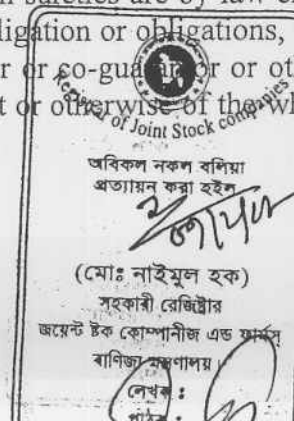 sureties are by law
ligation or obligations,
r or co-guarantor or ot
t or otherwise of the wh
Registrar of Joint Stock companies
অবিকল নকল বলিয়া
প্রত্যায়ন করা হইল
(মোঃ নাইমুল হক)
সহকারী রেজিষ্ট্রার
জয়েন্ট ষ্টক কোম্পানীজ এন্ড ফার্মস্
বাণিজ্য মন্ত্রণালয়।
লেখক :
পাঠক :